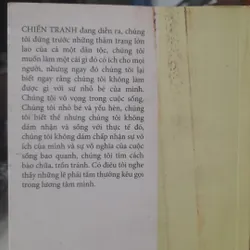 CHIẾN TRANH đang diễn ra, chúng
tôi đứng trước những thảm trạng lớn
lao của cả một dân tộc, chúng tôi
muốn làm một cái gì đó có ích cho mọi
người, nhưng ngay đó chúng tôi lại
biết ngay rằng chúng tôi không làm
được gì với sự nhỏ bé của mình.
Chúng tôi vô vọng trong cuộc sống.
Chúng tôi nhỏ bé và yếu hèn, chúng
tôi biết thế nhưng chúng tôi không
dám nhận và sống với thực tế đó,
chúng tôi không dám chấp nhận sự vô
ích của mình và sự vô nghĩa của cuộc
sống bao quanh, chúng tôi tìm cách
bào chữa, trốn tránh. Có điều tôi nghe
thấy những lẽ phải tầm thường kêu gọi
trong lương tâm mình.